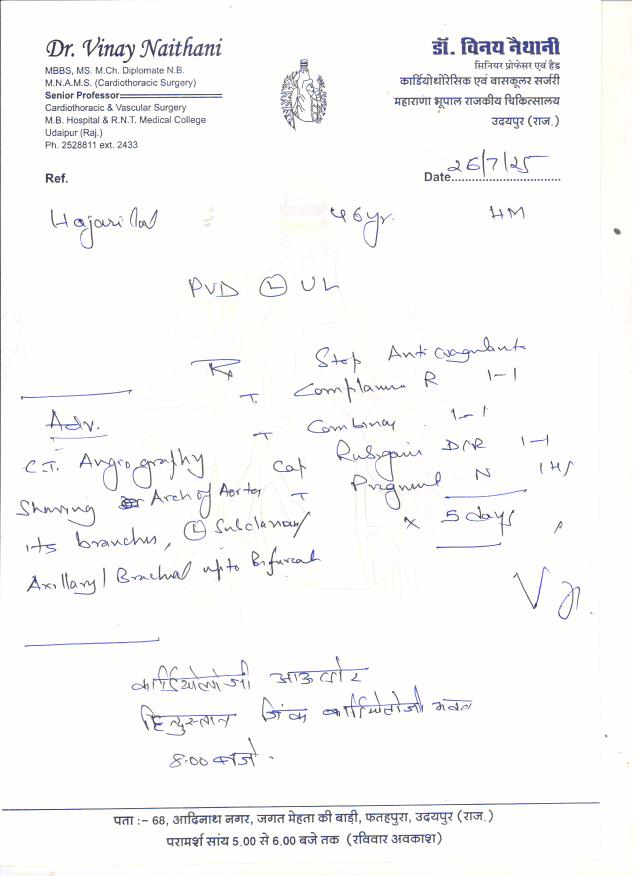 Dr. Vinay Naithani
MBBS, MS. M.Ch. Diplomate N.B.
M.N.A.M.S. (Cardiothoracic Surgery)
Senior Professor
Cardiothoracic & Vascular Surgery
M.B. Hospital & R.N.T. Medical College
Udaipur (Raj.)
Ph. 2528811 ext. 2433
डॉ. विनय नैथानी
सिनियर प्रोफेसर एवं हैड
कार्डियोथोरेसिक एवं वासकूलर सर्जरी
महाराणा भूपाल राजकीय चिकित्सालय
उदयपुर (राज.)
Ref.
Date 26/7/25
Hajarilal 46 yr. HM
PVD (L) UL
Rx Stop Anticoagulant
T R 1-1
T 1-1
Cap D/SR 1-1
T N 1 HS
x 5 days
Adv.
C.T. Angiography
Showing Arch of Aorta
its branches, (L) Subclavian/
Axillary/Brachial upto Bifurcat
कार्डियोलोजी आउटडोर
हिन्दुस्तान जिंक कार्डियोलोजी भवन
8.00 बजे.
पता :– 68, आदिनाथ नगर, जगत मेहता की बाड़ी, फतहपुरा, उदयपुर (राज.)
परामर्श सांय 5.00 से 6.00 बजे तक (रविवार अवकाश)